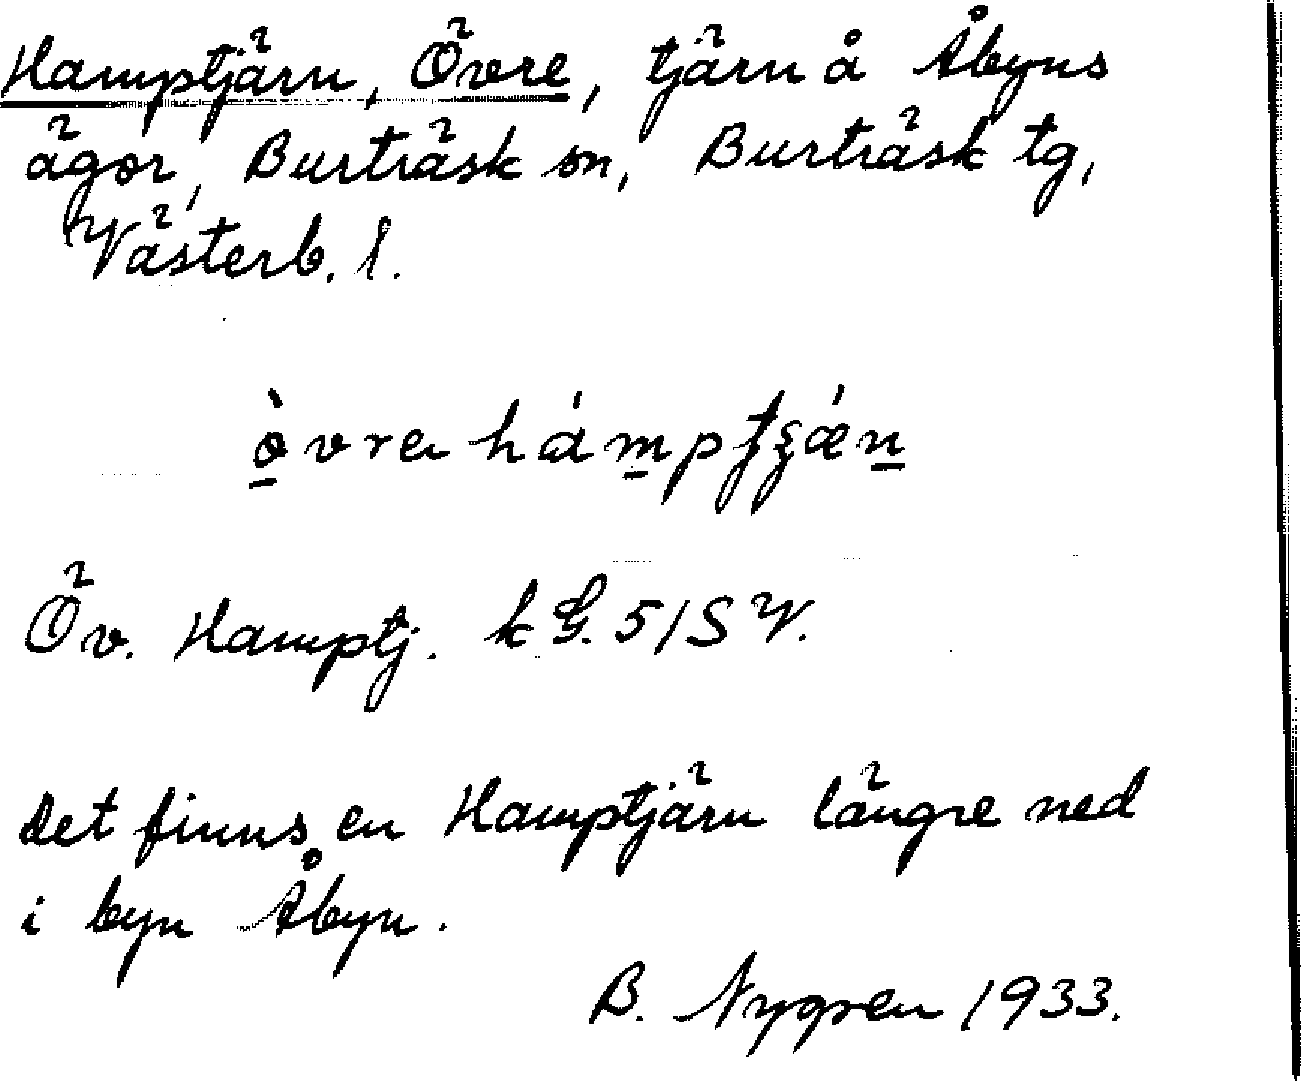 Hamptjärn, Övre, tjärn å Åbyns
ägor, Burträsk sn, Burträsk tg,
Västerb. l.
Öv. Hamptj. k G. 51 S V.
Det finns en Hamptjärn längre ned
i byn Åbyn.
B. Nygren 1933.